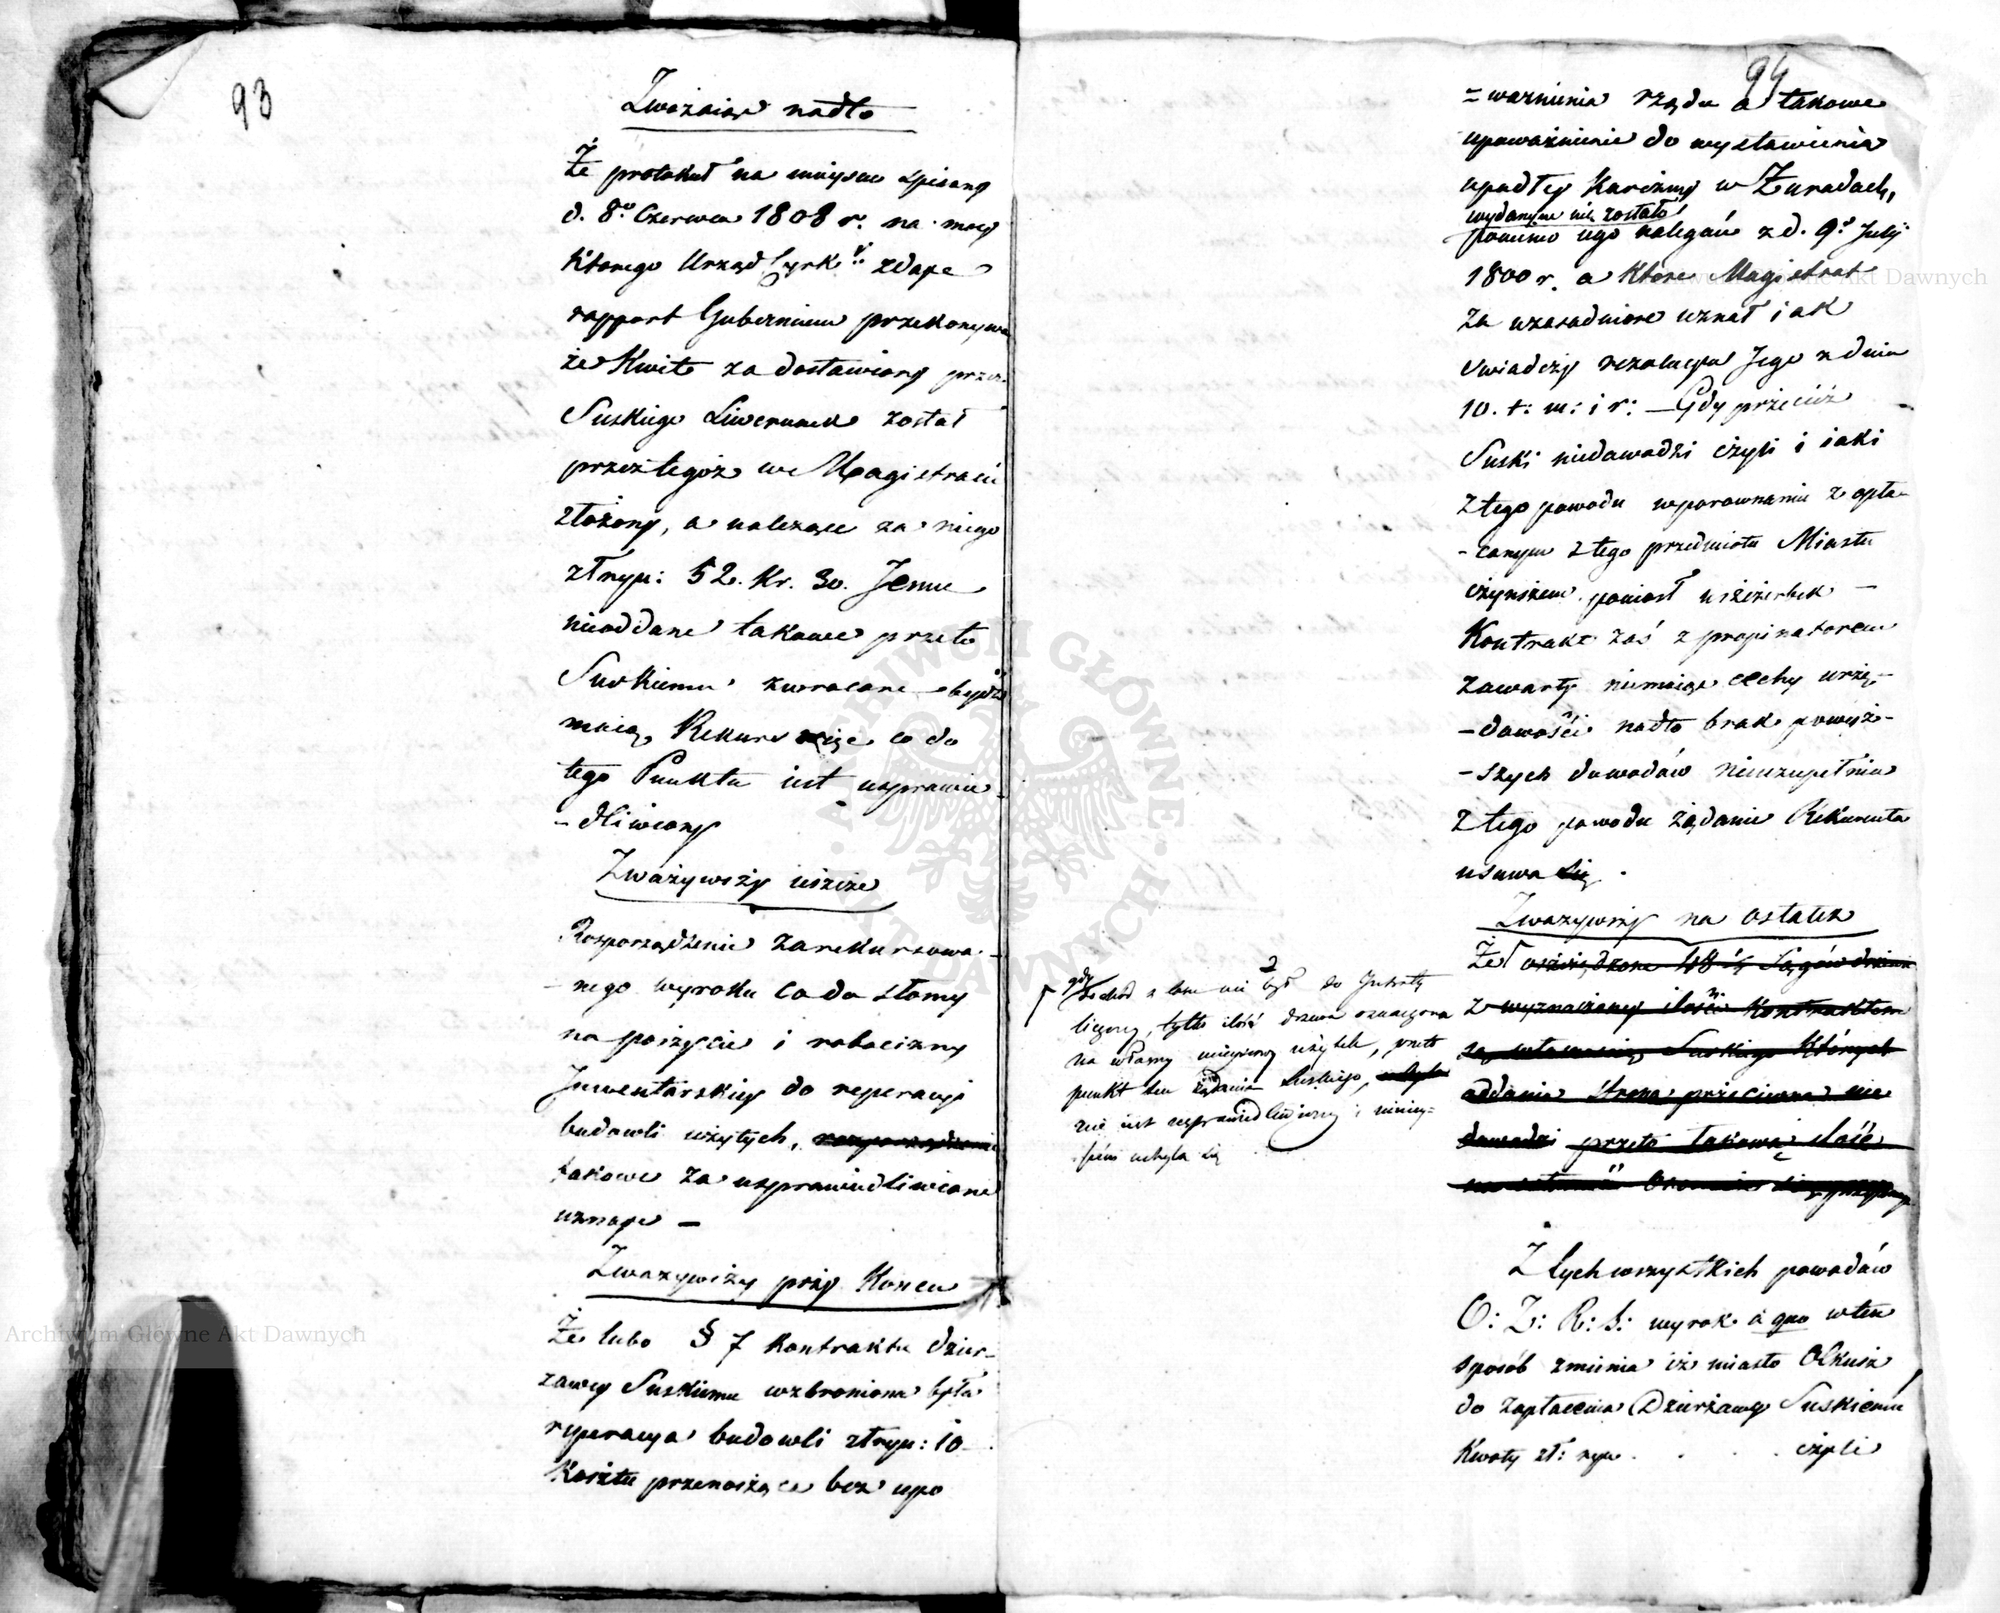 93
Zważaiąc nadto
Że protokuł na mieyscu spisany
d. 8º Czerwca 1808 r. na mocy
którego Urząd Cyrk: zdaje
rapport Gubernium przekonywa
że Kwit za dostawiony przez
Suskiego Liwerunek został
przez tegóż w Magistracie
złożony, a należące za niego
zł ryn: 52. Kr. 30. Jemu
nieoddane takowe przeto
Suskiemu zwracane bydź
maią, Rekurs więc co do
tego Punktu iest usprawie-
-dliwiony
Zważywszy ieszcze
Rosporządzenie zarekursowa-
-nego wyroku co do słomy
na poszycie i robocizny
Inwentarskiey do reperacyi
budowli użytych, rozporządzenie
takowe za usprawiedliwione
uznaje —
Zważywszy przy Końcu
Że lubo § 7 kontraktu dzier-
żawcy Suskiemu wzbroniona była
reperacya budowli zł ryn: 10
Kosztu przenosząca bez upo
94
= ważnienia rządu a takowe
upoważnienie do wystawienia
upadłey Karczmy w Żuradach,
wydanym nie zostało
pomimo iego nalegań z d. 9º July
1800 r. a które Magistrat
za uzasadnione uznał iak
świadczy rezolucya Jego z dnia
10. t: m: i r: — Gdy przecież
Suski niedowodzi czyli i iaki
z tego powodu w porównaniu z opła-
-canym z tego przedmiotu Miastu
czynszem poniosł uszczerbek —
Kontrakt zaś z propinatorem
zawarty niemaiąc cechy urzę-
-dowości nadto brak powyż-
-szych dowodów nieuzupełnia
z tego powodu żądanie Rekurenta
usuwa się .
Zważywszy na ostatek
Że oszczędzone 48 Sągów drzewa
z wyznaczoney ilości Kontraktem
są własnością Suskiego których
oddania Strona przeciwna nie
dowodzi przeto takową ilość
gdy dochód z lasu nie był do Intraty
liczony, tylko ilość drzewa oznaczona
na własny mieyscowy użytek, przeto
punkt ten żądania Suskiego,
nie iest usprawiedliwiony i niniey-
szem uchyla się
Z tych wszystkich powodów
O: Z: R: S: wyrok a quo w ten
sposób zmienia iż miasto Olkusz
do zapłacenia Dzierżawcy Suskiemu
Kwoty zł: ryn . . . . czyli